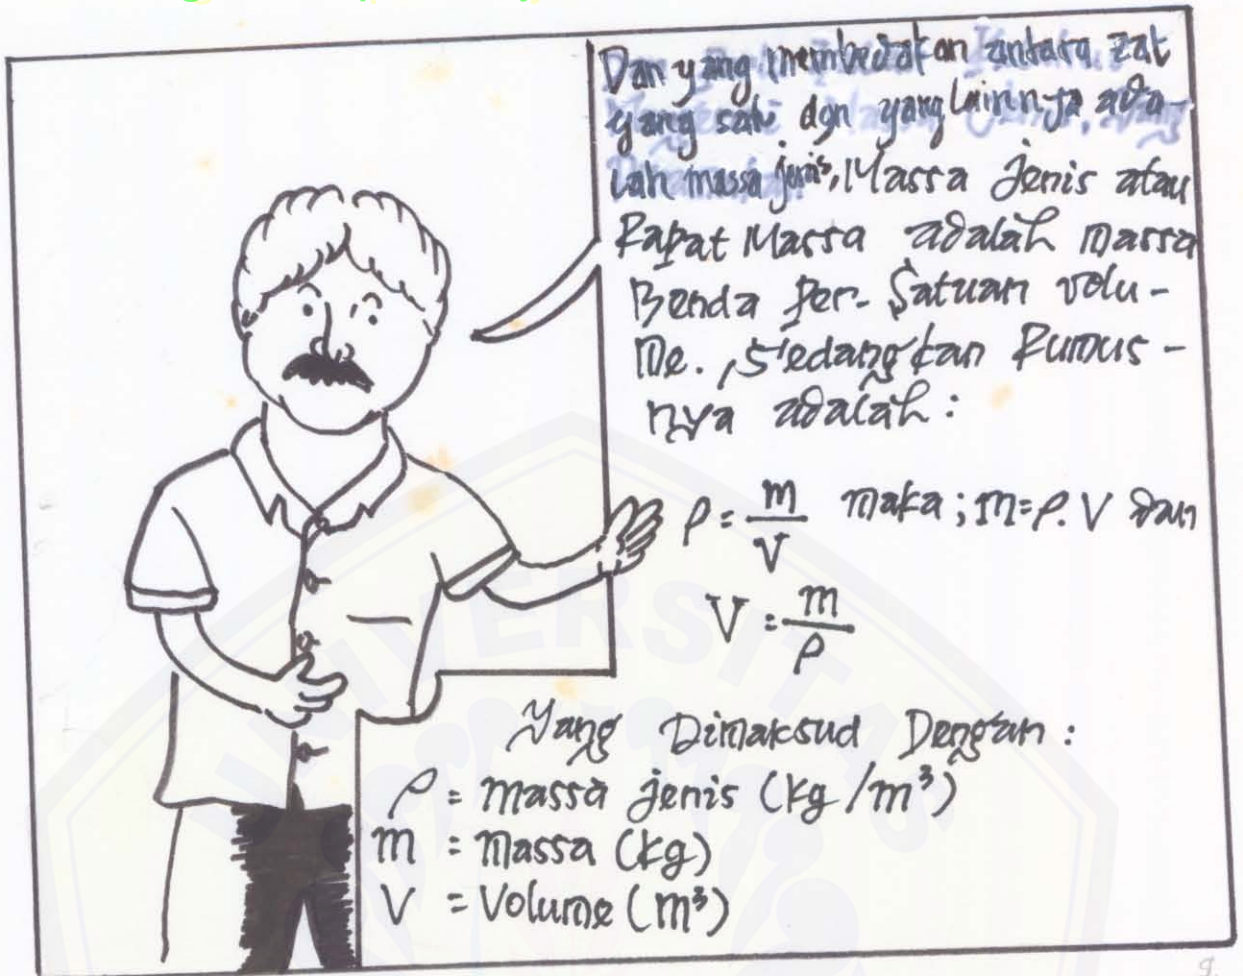 Dan yang membedakan antara zat
yang satu dgn yang lainnya, ada-
lah massa jenis, Massa Jenis atau
Rapat Massa adalah massa
Benda Per-Satuan volu-
me., Sedangkan Rumus-
nya adalah:
ρ = m/V maka; m=ρ.V dan
V = m/ρ
Yang Dimaksud Dengan:
ρ = massa jenis (kg/m³)
m = Massa (kg)
V = Volume (m³)
UNIVERSITAS
9.